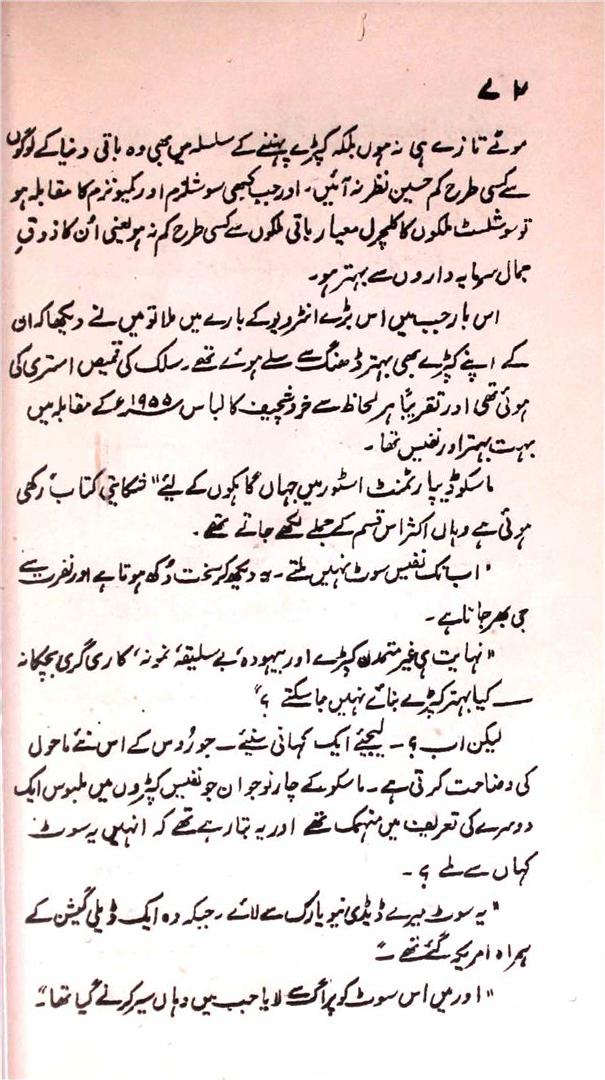 ۷۲
موٹے تازے ہی نہ ہوں بلکہ کپڑے پہننے کے سلسلہ میں بھی وہ باقی دنیا کے لوگوں
سے کسی طرح کم حسین نظر نہ آئیں۔ اور جب کبھی سوشلزم اور کمیونزم کا مقابلہ ہو
تو سوشلسٹ ملکوں کا کلچرل معیار باقی ملکوں سے کسی طرح کم نہ ہو یعنی اُن کا ذوقِ
جمال سرمایہ داروں سے بہتر ہو۔
اس بار جب میں اس بڑے انٹرویو کے بارے میں ملا تو میں نے دیکھا کہ ان
کے اپنے کپڑے بھی بہتر ڈھنگ سے سلے ہوئے تھے۔ سلک کی قمیص استری کی
ہوئی تھی اور تقریباً ہر لحاظ سے خروشچیف کا لباس ۱۹۵۵ء کے مقابلہ میں
بہت بہتر اور نفیس تھا۔
ماسکو ڈیپارٹمنٹ اسٹور میں جہاں گاہکوں کے لیئے "شکایتی کتاب" رکھی
ہوتی ہے وہاں اکثر اس قسم کے جملے لکھے جاتے تھے۔
"اب تک نفیس سوٹ نہیں ملتے۔ یہ دیکھ کر سخت دُکھ ہوتا ہے اور نفرت سے
جی بھر جاتا ہے۔
"نہایت ہی غیر متمدن کپڑے اور بیہودہ، بے سلیقہ نمونہ، کاری گری بچکانہ
— کیا بہتر کپڑے بنائے نہیں جا سکتے ؟"
لیکن اب ؟ ۔ لیجئے ایک کہانی سنیئے۔ جو رُوس کے اس نئے ماحول
کی وضاحت کرتی ہے۔ ماسکو کے چار نوجوان جو نفیس کپڑوں میں ملبوس ایک
دوسرے کی تعریف میں منہمک تھے اور یہ بتا رہے تھے کہ انہیں یہ سوٹ
کہاں سے ملے ؟ ۔
"یہ سوٹ میرے ڈیڈی نیویارک سے لائے۔ جبکہ وہ ایک ڈیلی گیشن کے
ہمراہ امریکہ گئے تھے۔"
"اور میں اس سوٹ کو پراگ سے لایا جب میں وہاں سیر کرنے گیا تھا۔"